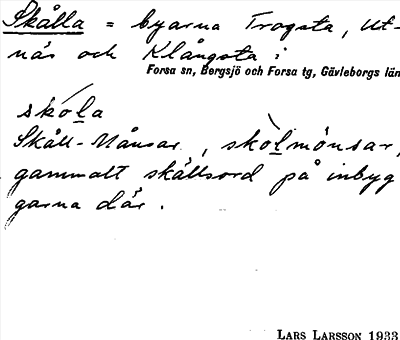 Skålla = byarna Trogsta, Ut-
näs och Klångsta i
Forsa sn, Bergsjö och Forsa tg, Gävleborgs län
skóla
Skåll-Månsar, skòlmónsar,
gammalt skällsord på inbyg
garna där.
LARS LARSSON 1933